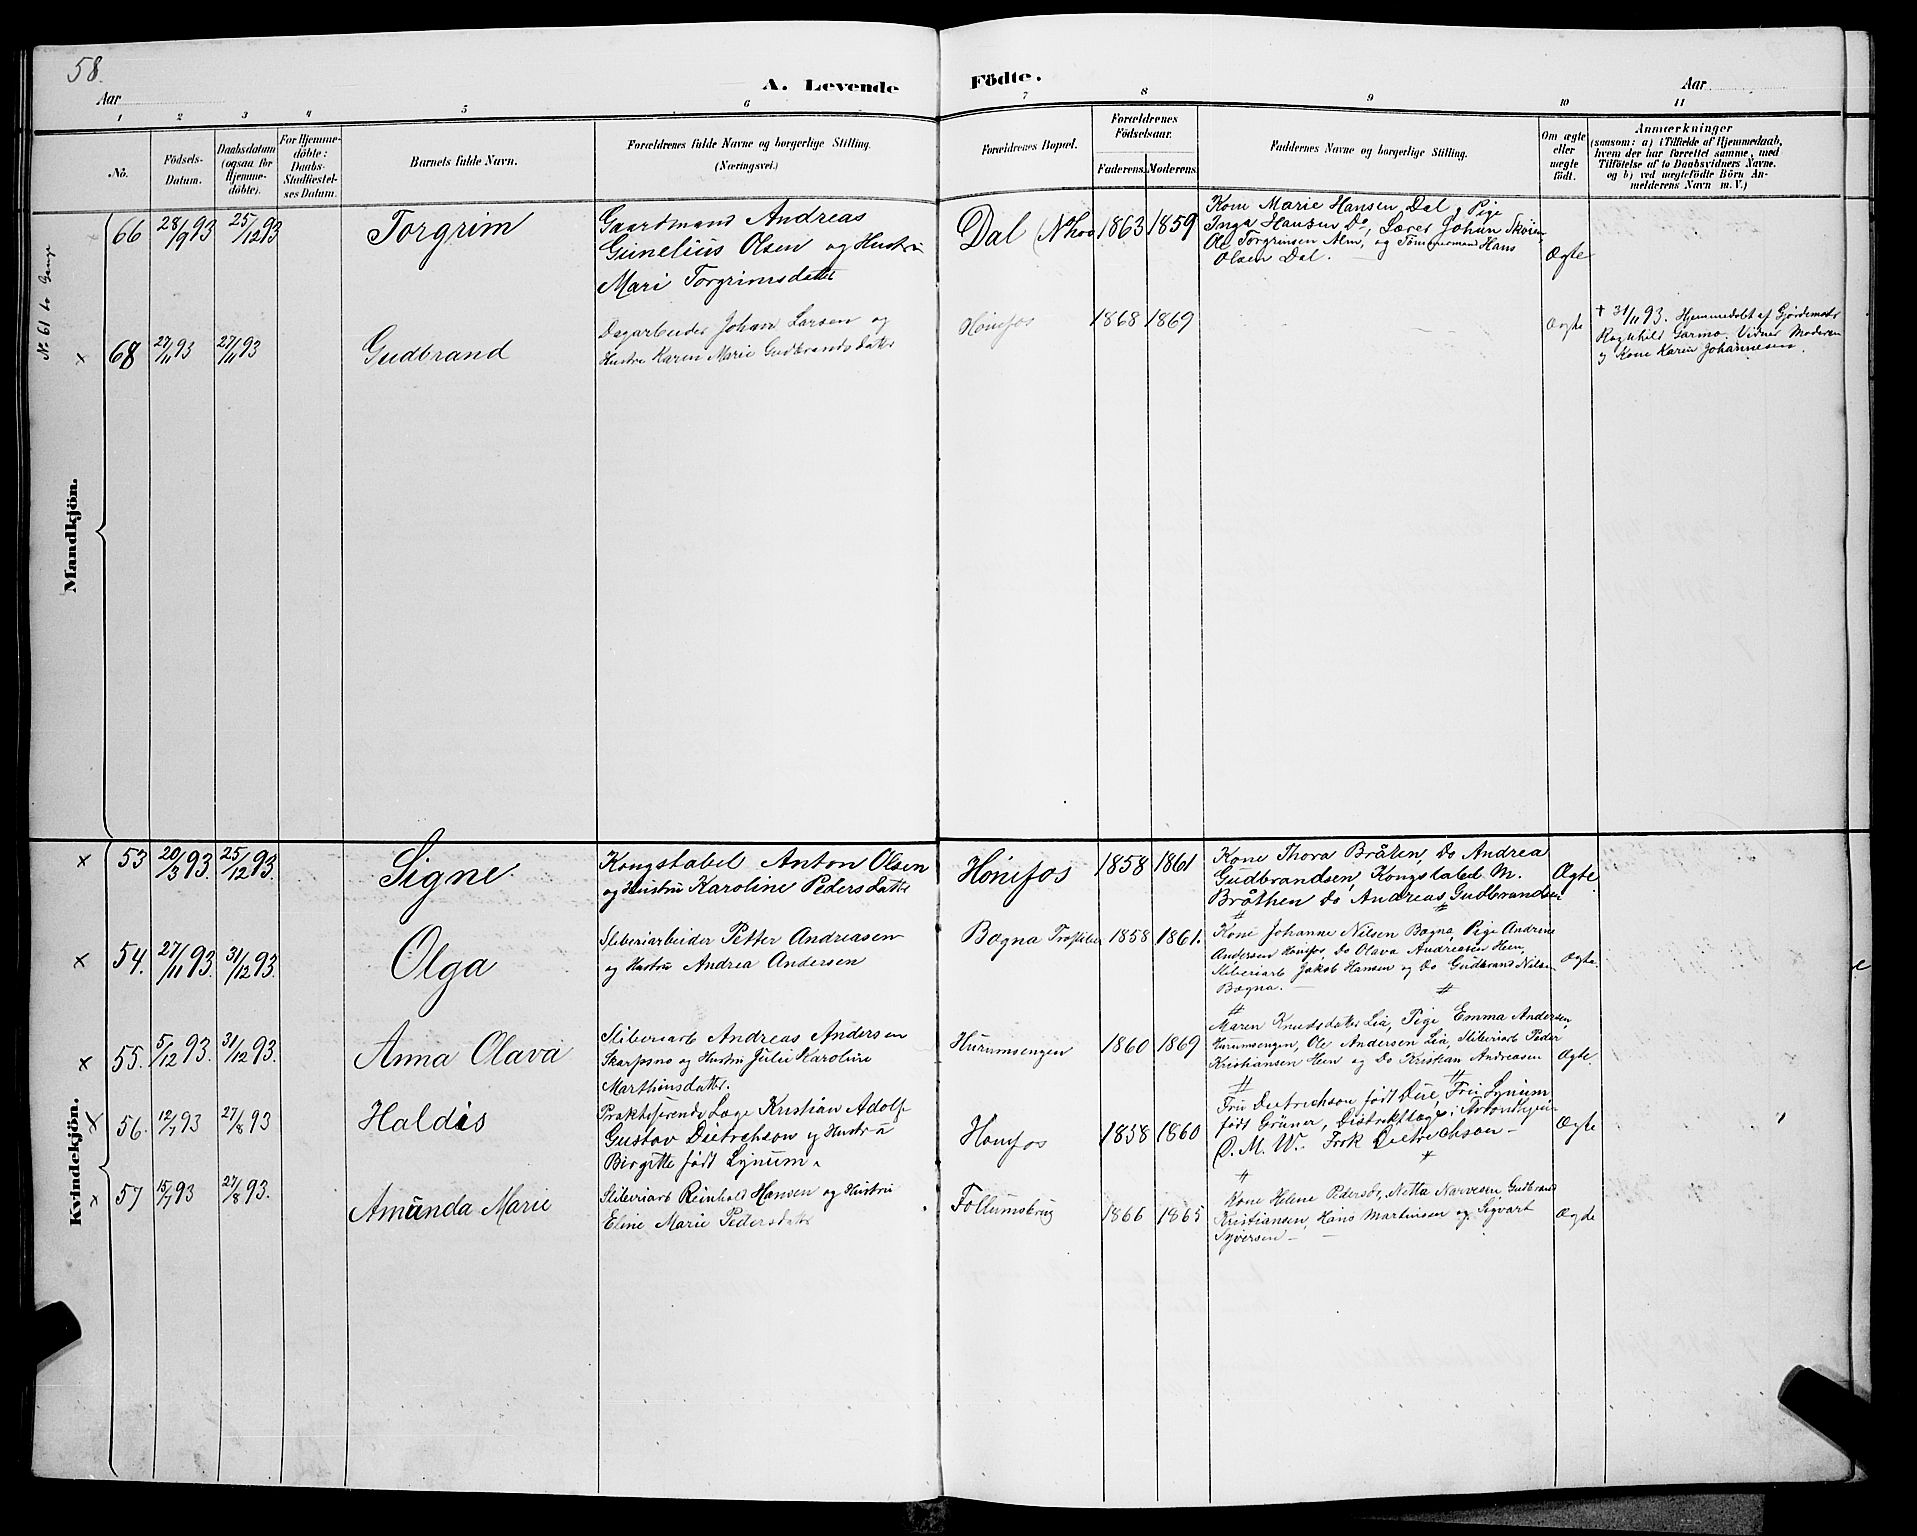 58.
A. Levende Födte.
Aar
Aar
1 2 3 4 5 6 7 8 9 10 11
No.
Födsels-
Datum.
Daabsdatum
(ogsaa for
Hjemme-
döbte).
For Hjemme-
döbte:
Daabs-
Stadfæstel-
ses Datum.
Barnets fulde Navn.
Forældrenes fulde Navne og borgerlige Stilling.
(Næringsvei.)
Forældrenes Bopæl.
Forældrenes
Födselsaar.
Faderens. Moderens.
Faddernes Navne og borgerlige Stilling.
Om ægte
eller
uægte
födt.
Anmærkninger
(saasom: a) i Tilfælde af Hjemmedaab,
hvem der har forrettet samme, med
Tilföielse af to Daabsvidners Navne,
og b) ved uægtefödte Börn An-
melderens Navn m. V.)
Mandkjön.
N. 61 to Gange
66 28/9 93 25/12 93 Torgrim
Gaardmand Andreas
Gunelius Olsen og Hustru
Mari Torgrimsdatter
Dal (Nhov 1863 1859
Kone Marie Hansen Dal, Pige
Inga Hansen Do, Lærer Johan Skoien,
Ole Torgrimsen Alm, og Tömmermand Hans
Olsen Dal.
Ægte
x 68 27/11 93 27/11 93 Gudbrand
Dagarbeider Johan Larsen og
Hustru Karen Marie Gudbrandsdatter
Hönefos 1868 1869 Ægte
+ 31/11 93. Hjemmedöbt af Gjordemoder
Ragnhild Garmo. Vidner Moderen
og Kone Karen Johannesen.
Kvindekjön.
x 53 20/3 93. 25/12 93. Signe
Kongstabel Anton Olsen
og Hustru Karoline Pedersdatter
Hönefos 1858 1861
Kone Thora Bråten, Do Andrea
Gudbrandsen, Kongstabel M.
Bråthen Do Andreas Gudbrandsen
Ægte.
x 54. 27/11 93. 31/12 93. Olga
Sliberiarbeider Petter Andreasen
og Hustru Andrea Andersen
Bægna 1858 1861.
Kone Johanne Nilsen Bægna, Pige Andrine
Andersen Hönefos, Do Olava Andreasen Hen,
Sliberiarb Jakob Hansen og Do Gudbrand Nilsen
Bægna.
Ægte.
x 55. 5/12 93. 31/12 93. Anna Olava
Sliberiarb Andreas Andersen
Skarpsno og Hustru Julie Karoline
Marthinsdatter.
Hurumsengen 1860 1869
Maren Knudsdatter Lia, Pige Emma Andersen,
Hurumsengen, Ole Andersen Lia, Sliberiarb Peder
Kristiansen Hen og Do Kristian Andreasen
Ægte.
x 56. 12/7 93 27/8 93 Haldis
Praktiserende Læge Kristian Adolf
Gustav Dietrichson og Hustru
Birgitte födt Lynum.
Hönefos 1858 1860
Fru Dietrichson födt Due, Fru Lynum
födt Grüner, Distriktslæge i
O. M. W. Frk Dietrichson
Ægte
x 57 15/7 93 27/8 93. Amanda Marie
Sliberiarb Reinhold Hansen og Hustru
Eline Marie Pedersdatter
Follumsbrug 1866 1865
Kone Helene Pedersö, Netta Narvesen Gudbrand
Kristiansen, Hans Martinsen og Sigvart
Syversen
Ægte